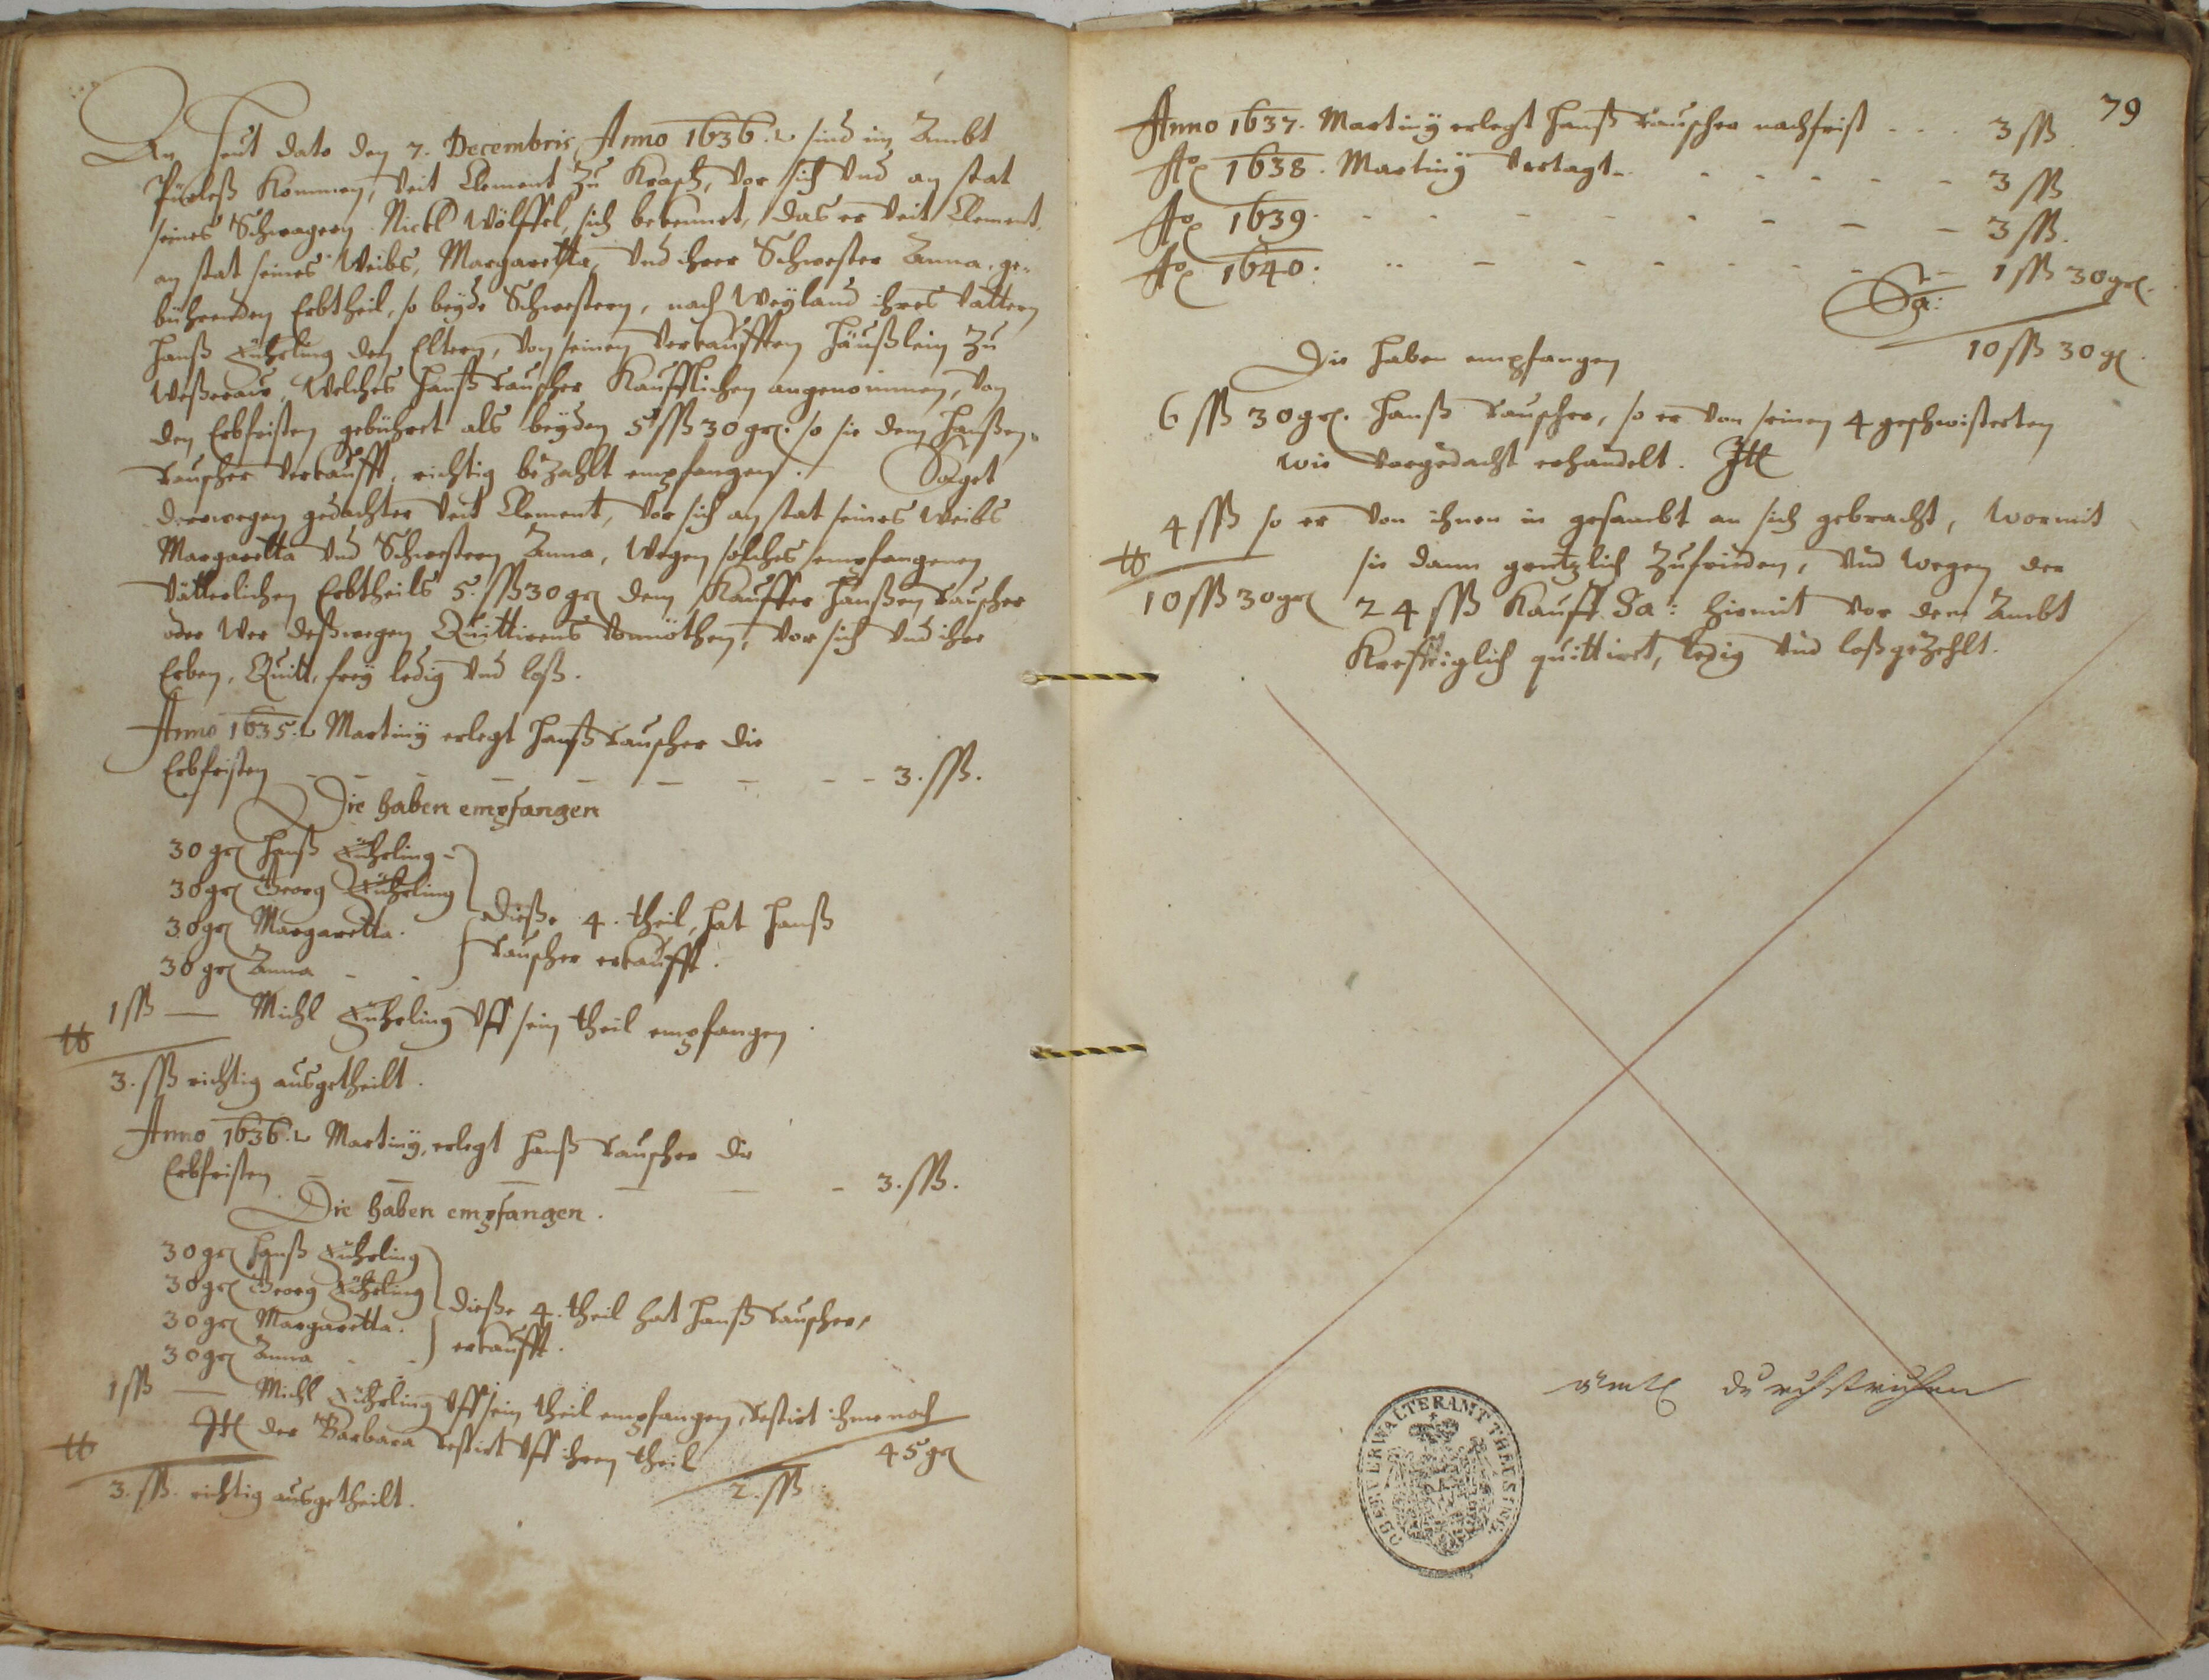 An Heut dato den 7. Decembris Anno 1636. sind im Ambt
kommen, Veit Clement zu Krasch, vor sich und an stat
seines Schwagern Nickl Wölffel, sich bekennet, das er Veit Clement,
an stat seines Weibs, Margaretta, Und ihrer Schwester Anna, ge-
bührenden Erbtheil, so beyde Schwestern, nach Weyland ihres Vattern
Hanß den Eltern, von seinen verkaufften Häußlein zu
Welches Hanß Rauscher Kaufflichen angenommen, von
den Erbfristen gebühret als beyden 5 ßß 30 gr. so sie dem Hanßen
Rauscher verkaufft, richtig bezahlt empfangen. Saget
derowegen gedachter Veit Clement, vor sich an stat seines Weibs
Margaretta Und Schwestern Anna, Wegen solches empfangenen
Vätterlichen Erbtheils 5. ßß 30 gr dem Kauffer Hanßen Rauscher
oder Wer deßwegen Quittirens vonnöthen, vor sich Und ihre
Erben, Quitt, frey ledig Und loß.
Anno 1635. Martiny erlegt Hanß Rauscher die
Erbfristen - - - - - - - - 3. ßß.
Die haben empfangen
30 gr Hanß
30 gr Georg
30 gr Margaretta.
30 gr Anna - -
Dieße 4. theil, hat Hanß
Rauscher erkaufft.
1 ßß — Michl Uff sein theil empfangen.
3. ßß richtig ausgetheilt.
Anno 1636. Martiny, erlegt Hanß Rauscher die
Erbfristen - - - - - - 3. ßß.
Die haben empfangen.
30 gr Hanß
30 gr Georg
30 gr Margaretta.
30 gr Anna - -
Dieße 4. theil hat Hanß Rauscher,
erkaufft.
1 ßß — Michl Uff sein theil empfangen, restirt ihme noch
45 gr
Itl der Barbara restirt Uff ihren theil
2. ßß
3. ßß. richtig ausgetheilt.
79
Anno 1637. Martiny erlegt Hanß Rauscher nachfrist - - - 3 ßß
Ao 1638. Martiny Vertagt - - - - - 3 ßß
Ao 1639. - - - - - - - - 3 ßß.
Ao 1640. - - - - - - - - 1 ßß 30 gr.
Sa:
10 ßß 30 gr.
Die haben empfangen
6 ßß 30 gr. Hanß Rauscher, so er von seinen 4 geschwisterten
wie vorgedacht erhandelt. Itl
4 ßß so er von ihnen in gesambt an sich gebracht, wormit
sie dann gentzlich zufrieden, Und wegen der
10 ßß 30 gr 24 ßß Kauff Sa: hiemit vor dem Ambt
Krefftiglich quittiret, ledig Und loßgezehlt.
amtl durchstrichen
OBERVERWALTERAMT THEUSING